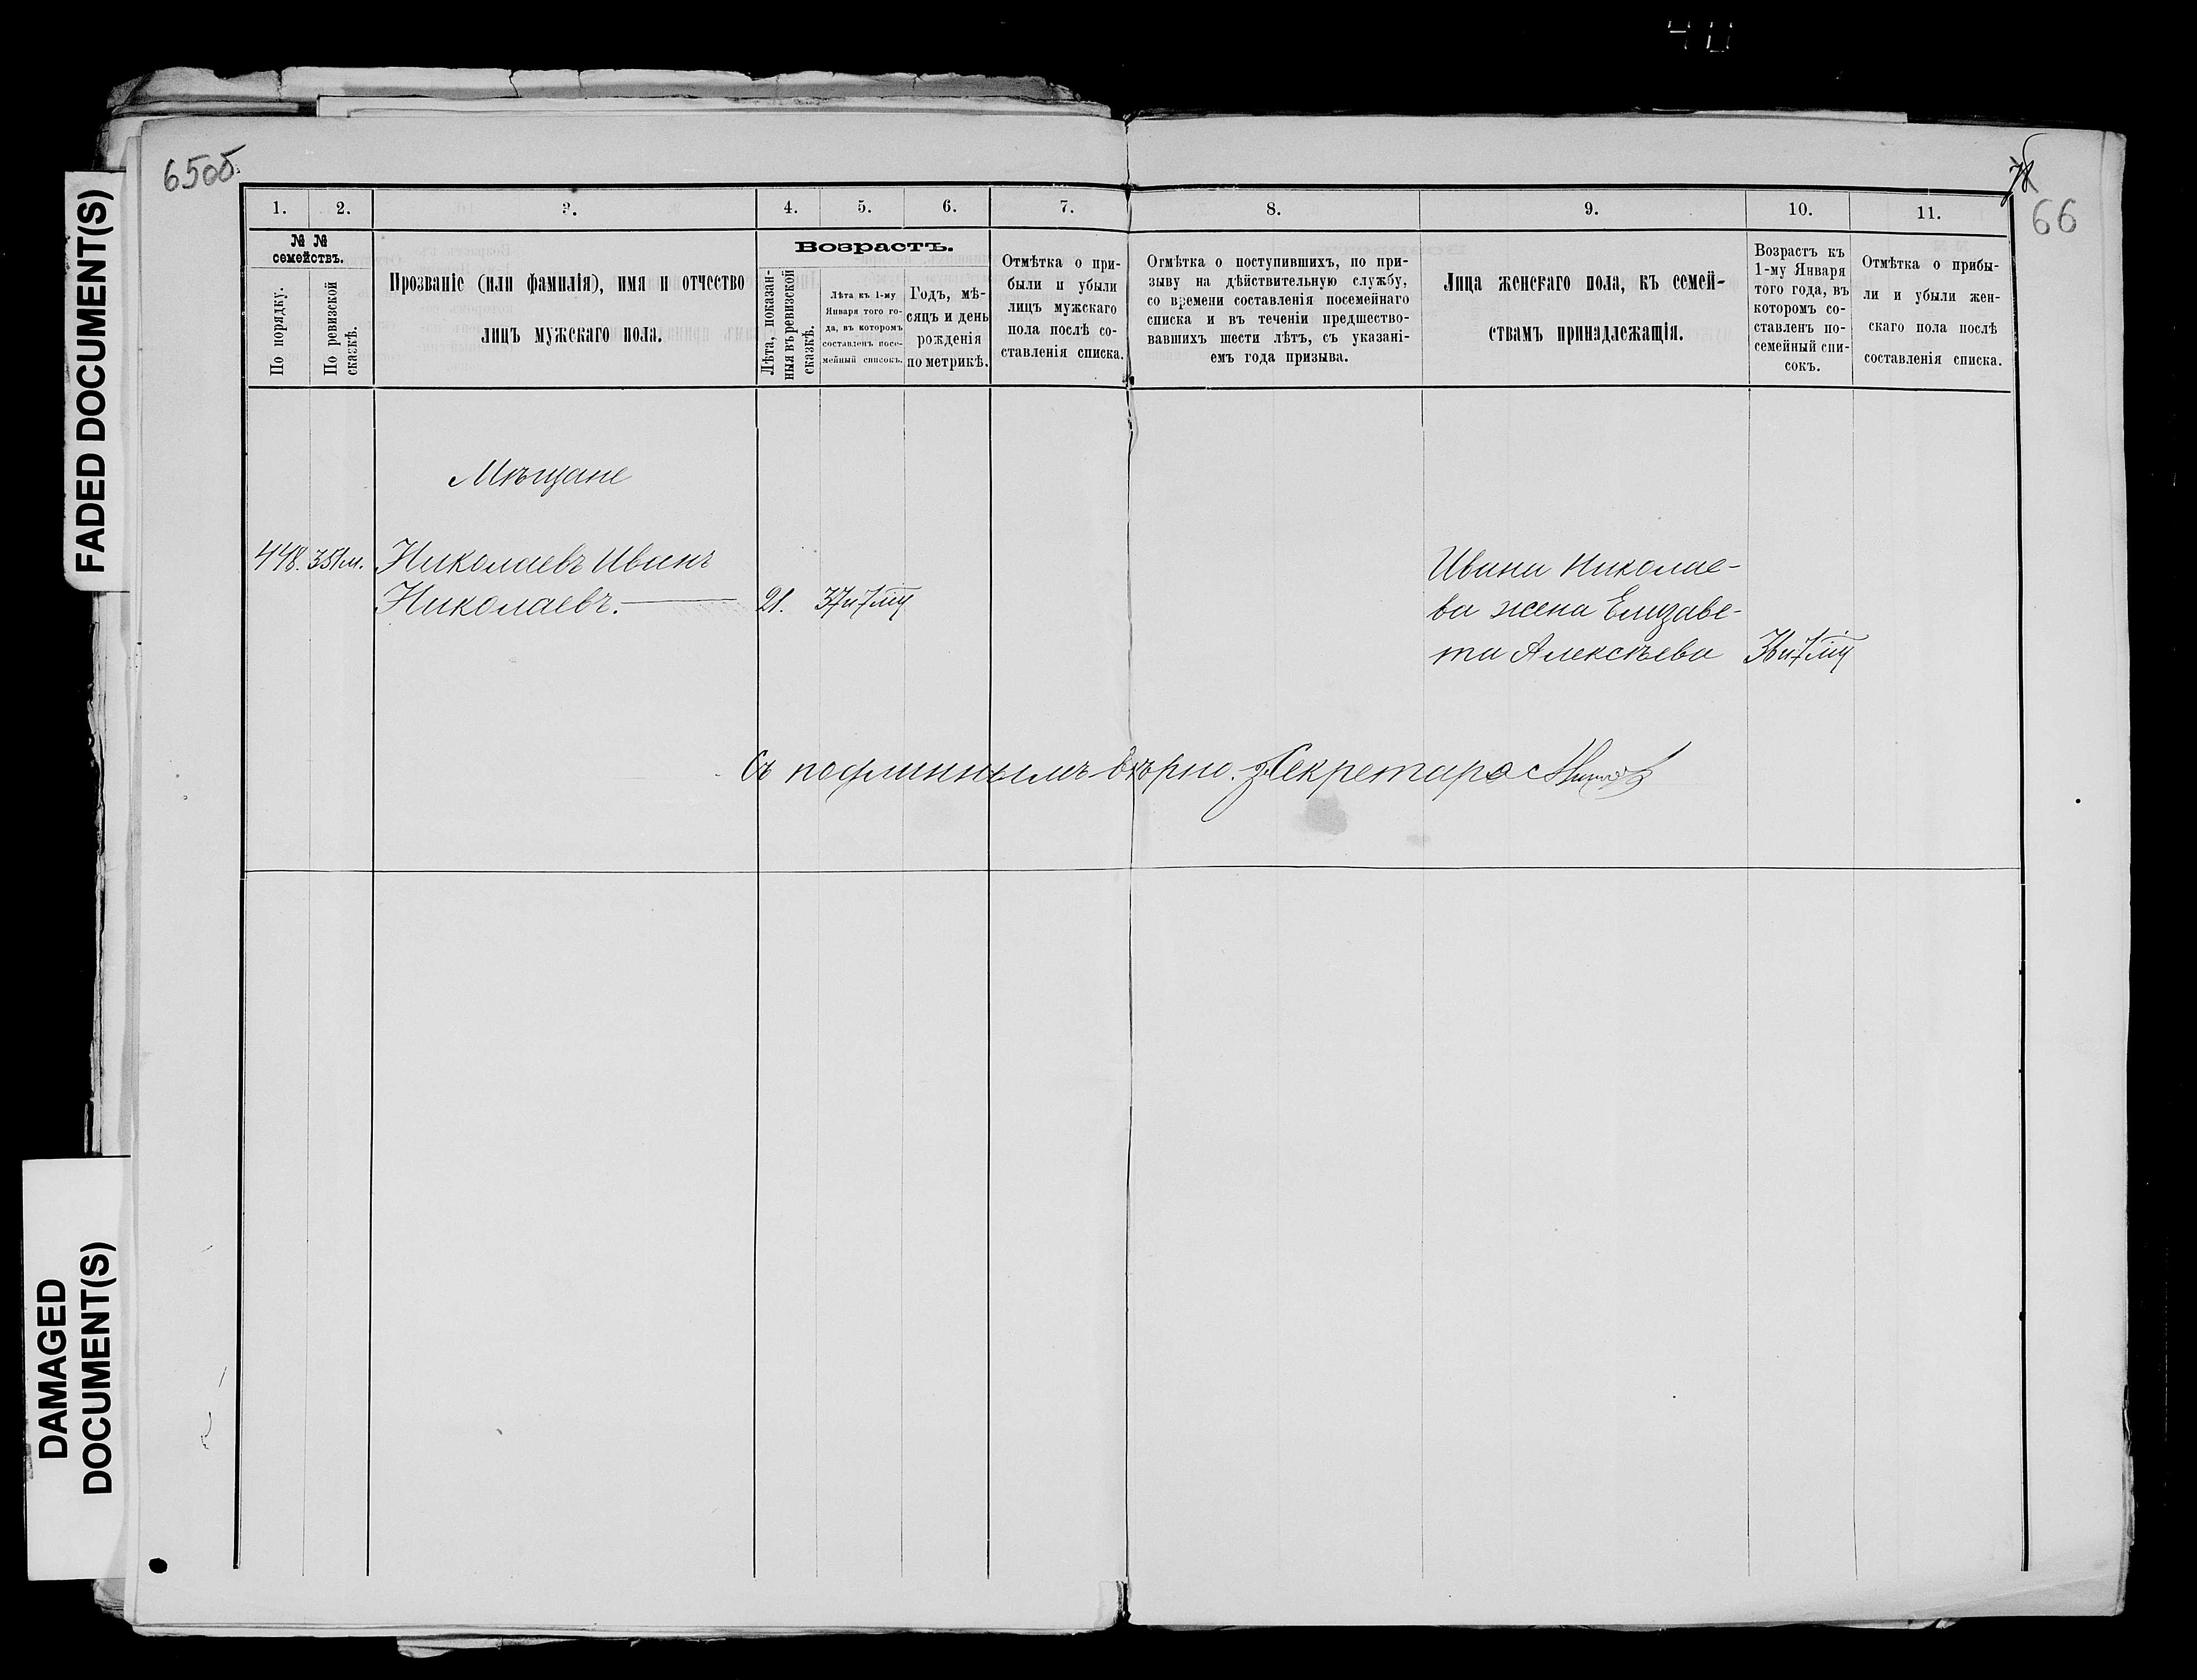 40
65об.
66
FADED DOCUMENT(S)
DAMAGED
DOCUMENT(S)
1. 2. 3. 4. 5. 6. 7. 8. 9. 10. 11.
№ №
семействъ.
По порядку.
По ревизской
сказкѣ.
Прозваніе (или фамилія), имя и отчество
лицъ мужскаго пола.
Возрастъ.
Лѣта, показан-
ныя въ ревизской
сказкѣ.
Лѣта къ 1-му
Января того го-
да, въ которомъ
составленъ посе-
мейный списокъ.
Годъ, мѣ-
сяцъ и день
рожденія
по метрикѣ.
Отмѣтка о при-
были и убыли
лицъ мужскаго
пола послѣ со-
ставленія списка.
Отмѣтка о поступившихъ, по при-
зыву на дѣйствительную службу,
со времени составленія посемейнаго
списка и въ теченіи предшество-
вавшихъ шести лѣтъ, съ указані-
емъ года призыва.
Лица женскаго пола, къ семей-
ствамъ принадлежащія.
Возрастъ къ
1-му Января
того года, въ
которомъ со-
ставленъ по-
семейный спи-
сокъ.
Отмѣтка о прибы-
ли и убыли жен-
скаго пола послѣ
составленія списка.
Мѣщане
448. 351 м. Николаевъ Иванъ
Николаевъ. 21. 37 и 7 м
Ивана Николае-
ва жена Елизаве-
та Алексѣева 36 и 7 м
Съ подлиннымъ вѣрно. Секретарь